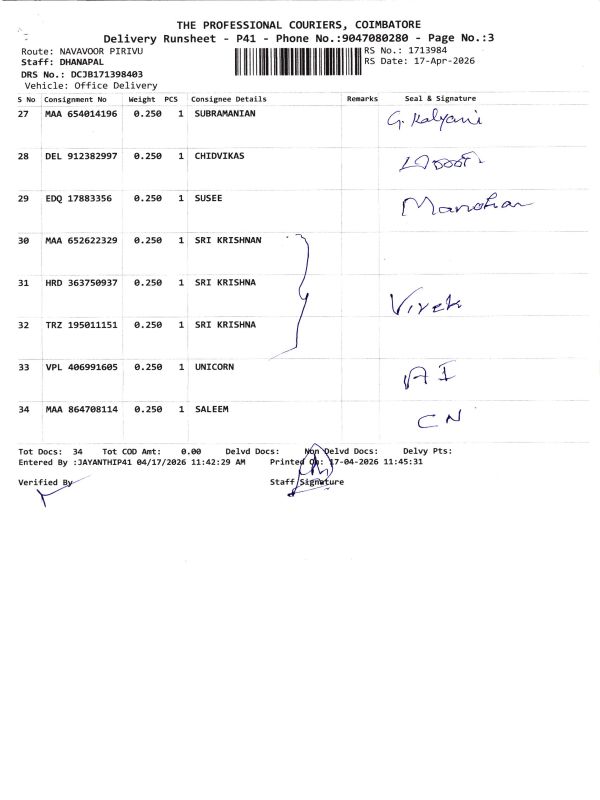 THE PROFESSIONAL COURIERS, COIMBATORE
Delivery Runsheet - P41 - Phone No.:9047080280 - Page No.:3
Route: NAVAVOOR PIRIVU RS No.: 1713984
Staff: DHANAPAL RS Date: 17-Apr-2026
DRS No.: DCJB171398403
Vehicle: Office Delivery
S No Consignment No Weight PCS Consignee Details Remarks Seal & Signature
27 MAA 654014196 0.250 1 SUBRAMANIAN G. Kalyani
28 DEL 912382997 0.250 1 CHIDVIKAS
29 EDQ 17883356 0.250 1 SUSEE Manohar
30 MAA 652622329 0.250 1 SRI KRISHNAN
31 HRD 363750937 0.250 1 SRI KRISHNA
Vivek
32 TRZ 195011151 0.250 1 SRI KRISHNA
33 VPL 406991605 0.250 1 UNICORN AI
34 MAA 864708114 0.250 1 SALEEM CN
Tot Docs: 34 Tot COD Amt: 0.00 Delvd Docs: Non Delvd Docs: Delvy Pts:
Entered By :JAYANTHIP41 04/17/2026 11:42:29 AM Printed On: 17-04-2026 11:45:31
Verified By Staff Signature